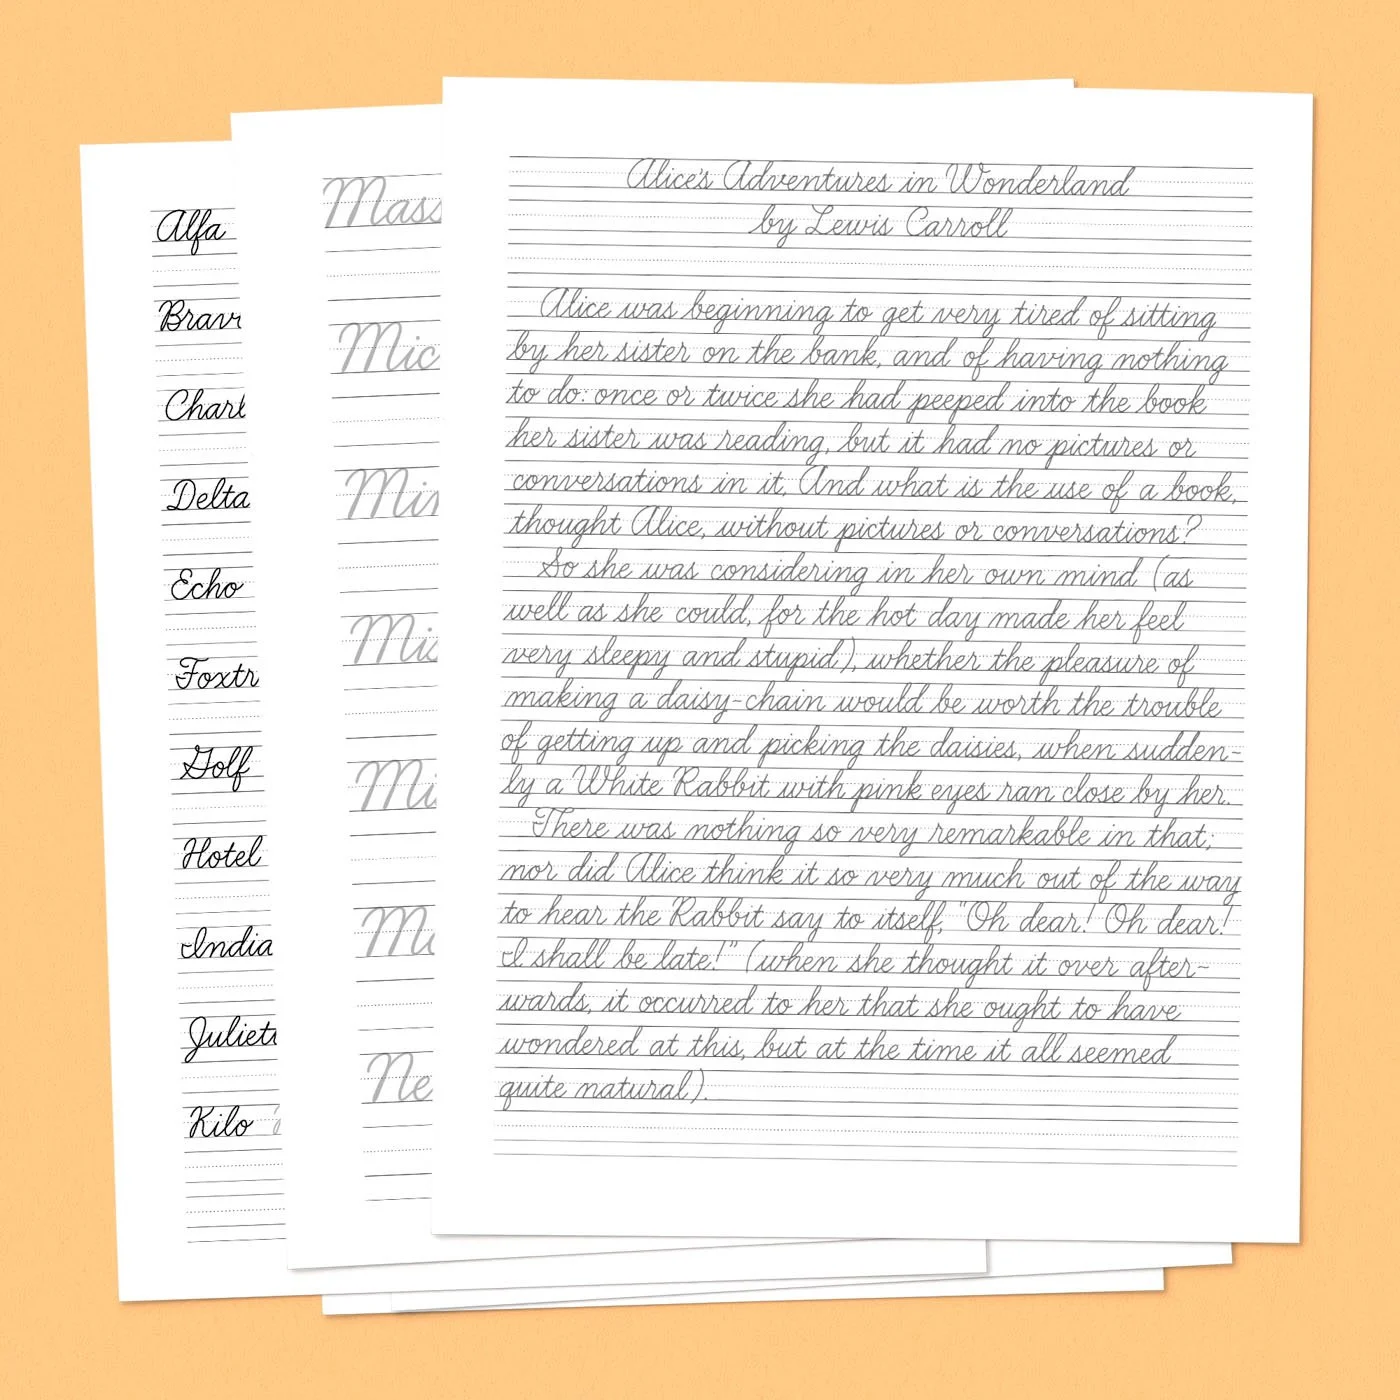 Alfa
Brav
Charl
Delta
Echo
Foxtr
Golf
Hotel
India
Juliet
Kilo
Mass
Mic
Min
Mis
Mi
Ne
Alice's Adventures in Wonderland
by Lewis Carroll
Alice was beginning to get very tired of sitting
by her sister on the bank, and of having nothing
to do: once or twice she had peeped into the book
her sister was reading, but it had no pictures or
conversations in it, And what is the use of a book,
thought Alice, without pictures or conversations?
So she was considering in her own mind (as
well as she could, for the hot day made her feel
very sleepy and stupid), whether the pleasure of
making a daisy-chain would be worth the trouble
of getting up and picking the daisies, when sudden-
ly a White Rabbit with pink eyes ran close by her.
There was nothing so very remarkable in that;
nor did Alice think it so very much out of the way
to hear the Rabbit say to itself, "Oh dear! Oh dear!
I shall be late!" (when she thought it over after-
wards, it occurred to her that she ought to have
wondered at this, but at the time it all seemed
quite natural).